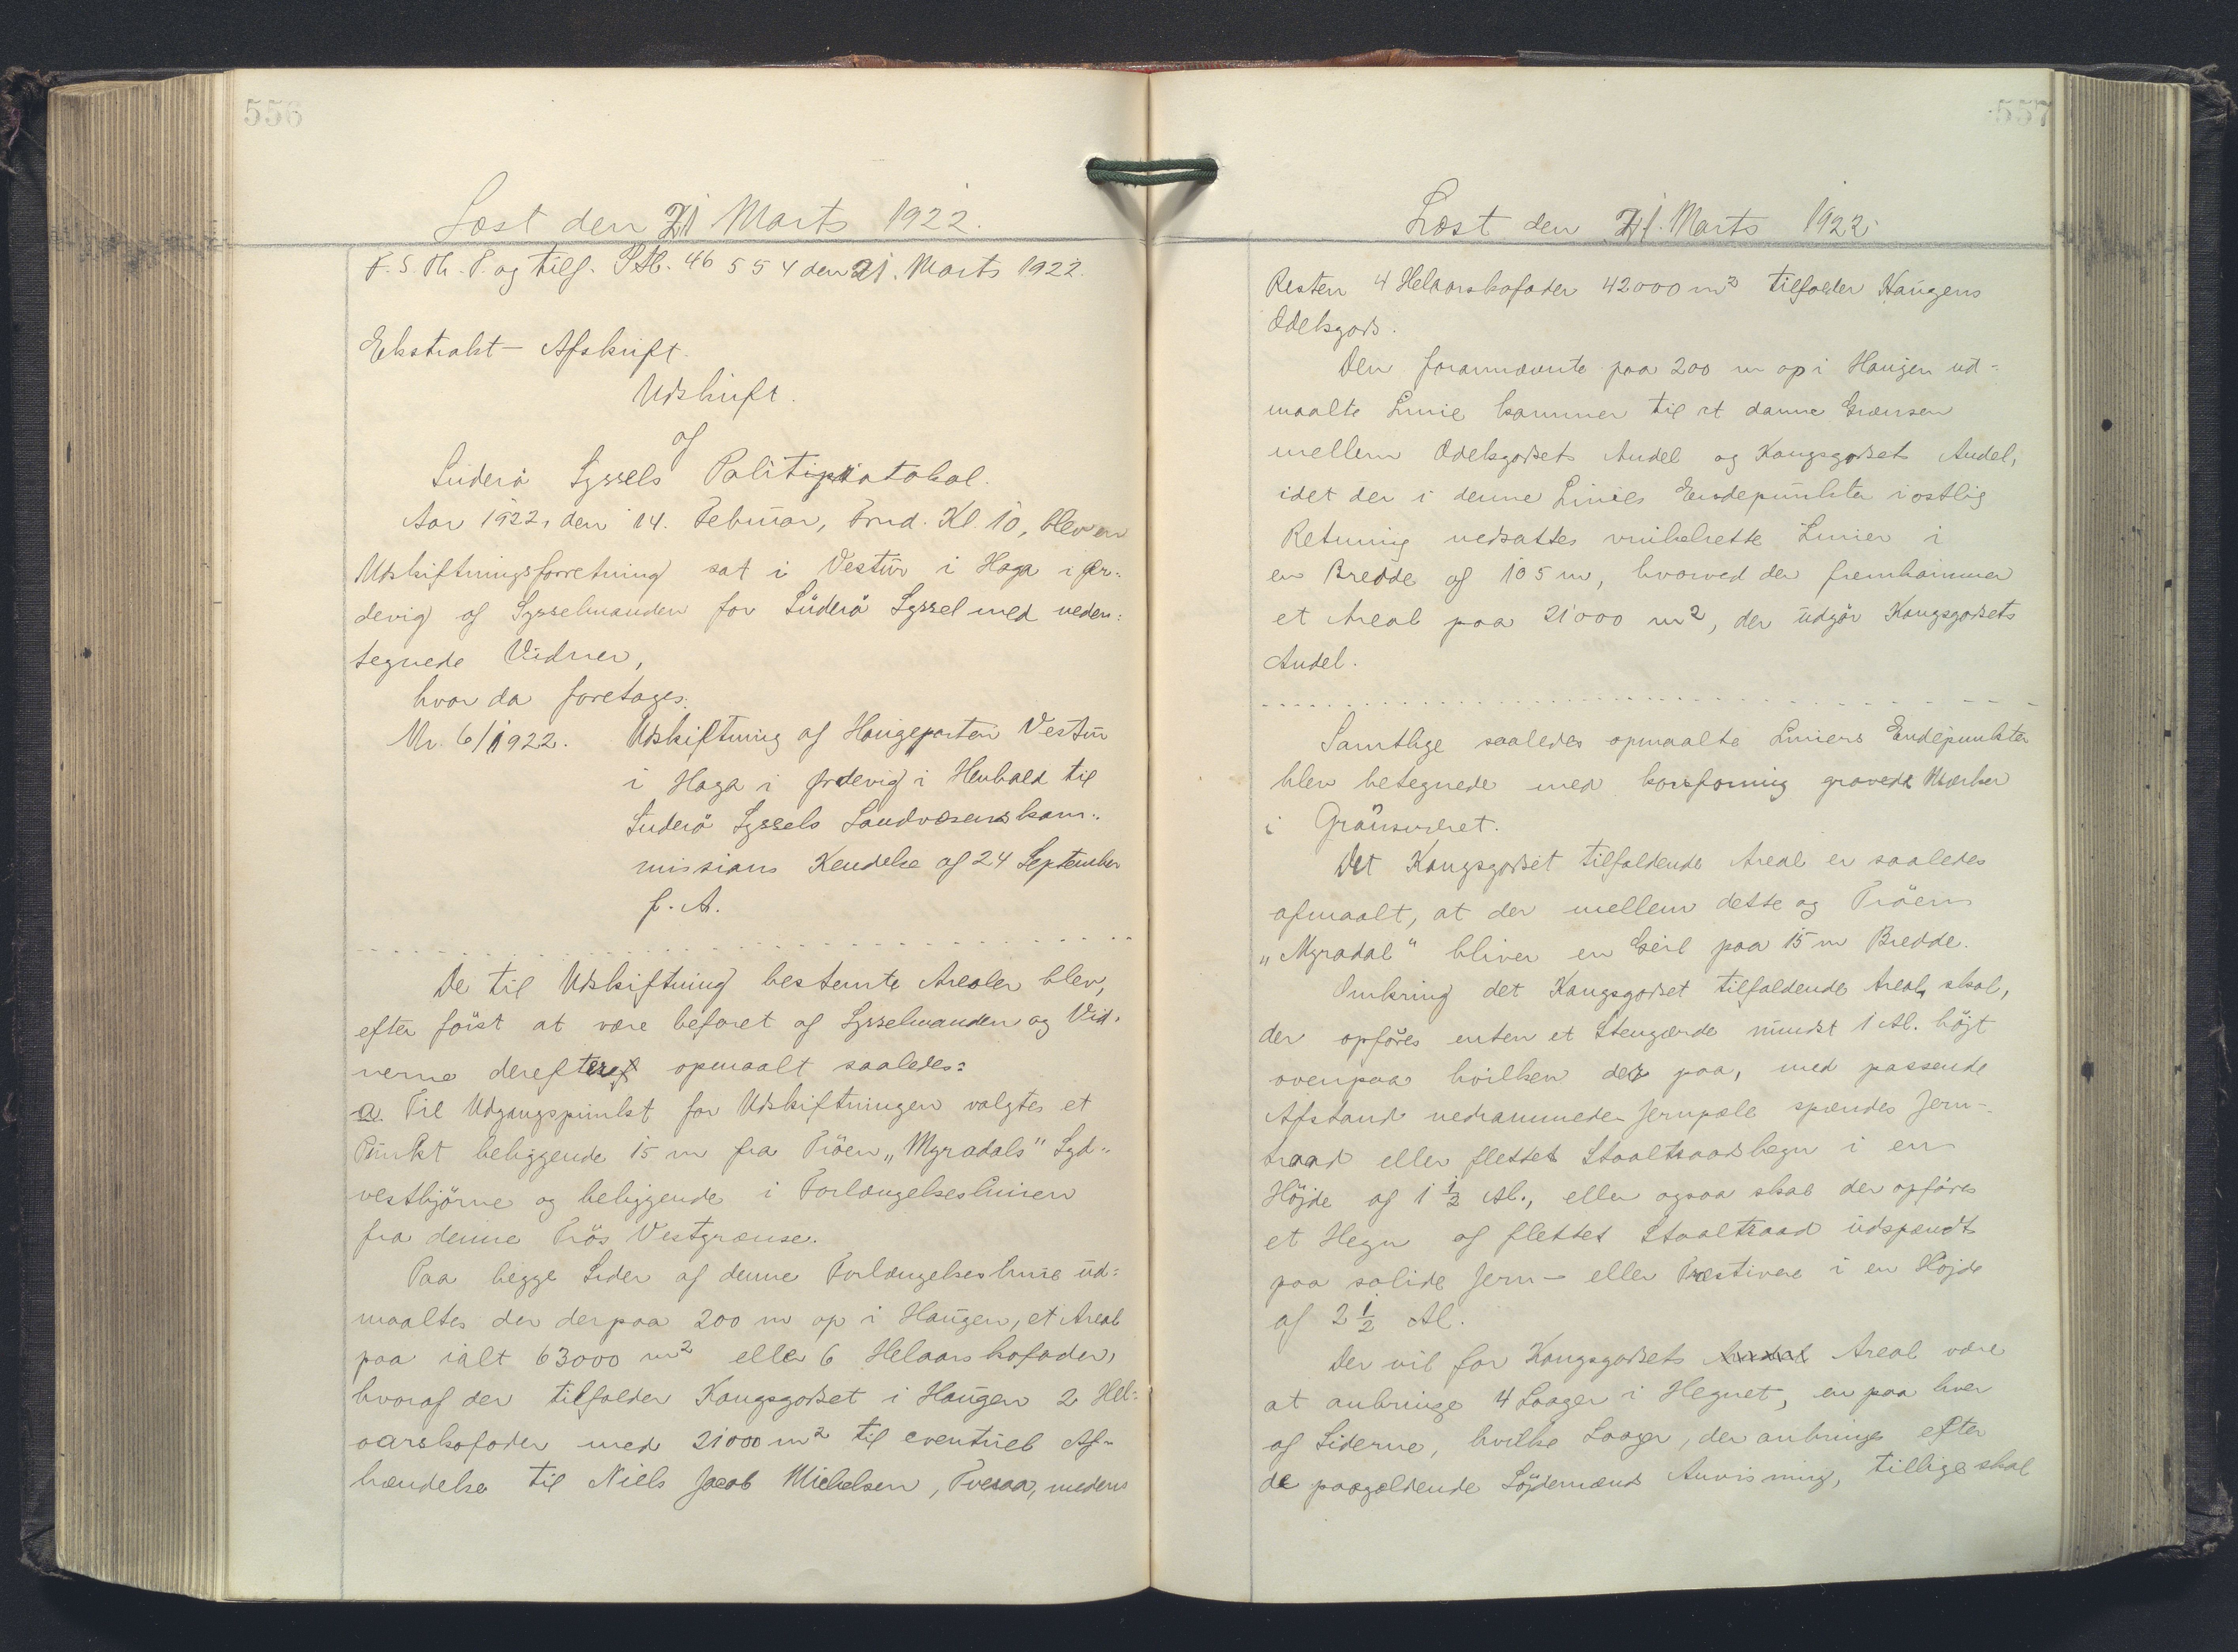 556
Læst den 21 Marts 1922.
F. S. Th. P. og tilf. Ptl. 46 554 den 21. Marts 1922.
Ekstrakt - Afskrift.
Udskrift.
af
Suderø Syssels Politiprotokol.
Aar 1922, den 14. Februar, Frmd. Kl. 10, blev en
Udskiftningsforretning sat i Vestur i Haga i Ør-
devig af Sysselmanden for Suderø Syssel med neden-
tegnede Vidner,
hvor da foretages:
Nr. 6/1922. Udskiftning af Haugeparten Vestur
i Haga i Ørdevig i Henhold til
Suderø Syssels Landvæsenskom-
missions Kendelse af 24 September
f. A.
De til Udskiftning bestemte Arealer blev,
efter først at være befaret af Sysselmanden og Vid-
nerne derefter opmaalt saaledes:
a. Til Udgangspunkt for Udskiftningen valgtes et
Punkt beliggende 15 m fra Trøen "Myradals" Syd-
vesthjørne og beliggende i Forlængelseslinien
fra denne Trøs Vestgrænse.
Paa begge Sider af denne Forlængelseslinie ud-
maaltes der derpaa 200 m op i Haugen, et Areal
paa ialt 63000 m² eller 6 Helaarskofoder,
hvoraf der tilfalder Kongsgodset i Haugen 2 Hel-
aarskofoder med 21000 m² til eventuel Af-
hændelse til Niels Jacob Michelsen, Tveraa, medens
557
Læst den 21. Marts 1922.
Resten 4 Helaarskofoder 42000 m² tilfalder Haugens
Odelsgods.
Den forannævnte paa 200 m op i Haugen ud-
maalte Linie kommer til at danne Grænsen
mellem Odelsgodsets Andel og Kongsgodsets Andel,
idet der i denne Linies Endepunkter i østlig
Retning nedsattes vinkelrette Linier i
en Bredde af 105 m, hvorved der fremkommer
et Areal paa 21000 m², der udgør Kongsgodsets
Andel.
Samtlige saaledes opmaalte Liniers Endepunkter
blev betegnede med korsformig gravede Mærker
i Grönsværet.
Det Kongsgodset tilfaldende Areal er saaledes
afmaalt, at der mellem dette og Trøen
"Myradal" bliver en Geil paa 15 m Bredde.
Omkring det Kongsgodset tilfaldende Areal, skal,
der opføres enten et Stengærde mindst 1 Al. højt
ovenpaa hvilken der paa, med passende
Afstand nedrammede Jernpæle spændes Jern-
traad eller flettet Staaltraadshegn i en
Højde af 1 1/2 Al., eller ogsaa skal der opføres
et Hegn af flettet Staaltraad udspændt
paa solide Jern- eller Træstivere i en Højde
af 2 1/2 Al.
Der vil for Kongsgodsets Areal være
at anbringe 4 Laager i Hegnet, en paa hver
af Siderne, hvilke Laager, der anbringes efter
de paagældende Lodsmænds Anvisning, tillige skal